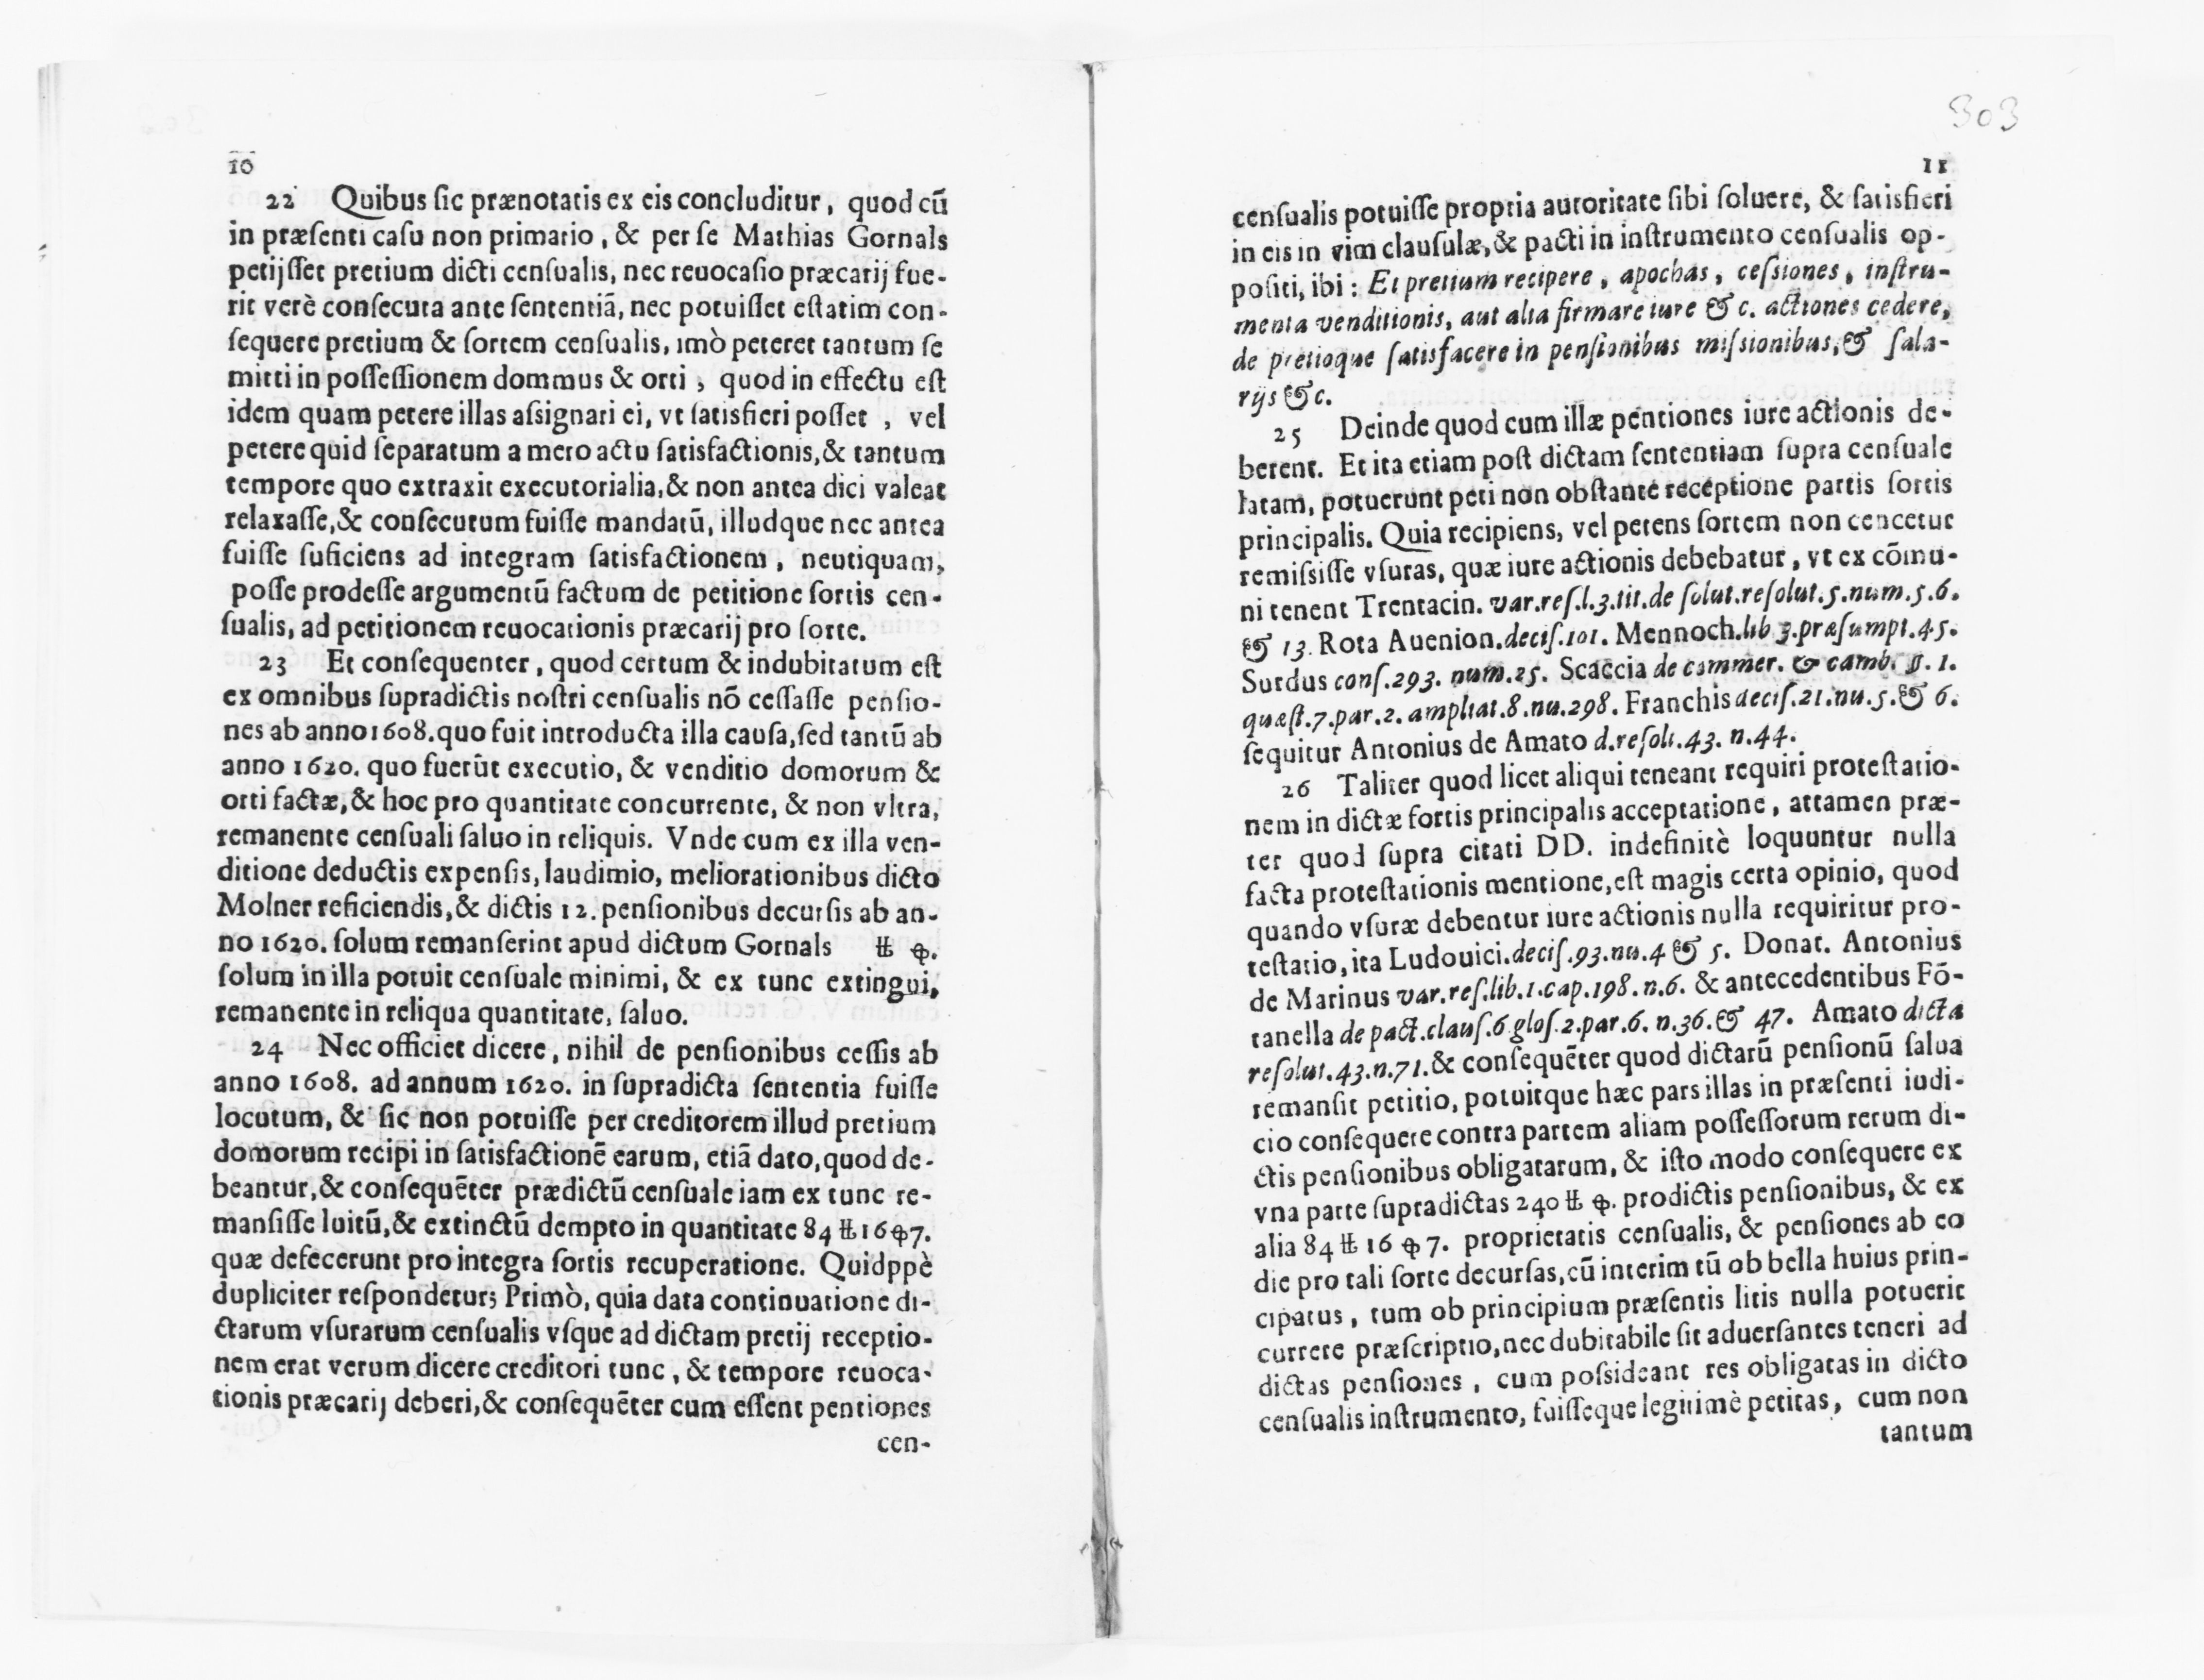 10
22 Quibus ſic prænotatis ex eis concluditur, quod cū
in præſenti caſu non primario, & per ſe Mathias Gornals
petijſſet pretium dicti cenſualis, nec reuocaſio præcarij fue-
rit verè conſecuta ante ſententiā, nec potuiſſet eſtatim con-
ſequere pretium & ſortem cenſualis, imò peteret tantum ſe
mitti in poſſeſſionem dommus & orti, quod in effectu eſt
idem quam petere illas aſsignari ei, vt ſatisfieri poſſet, vel
petere quid ſeparatum a mero actu ſatisfactionis, & tantum
tempore quo extraxit executorialia, & non antea dici valeat
relaxaſſe, & conſecutum fuiſſe mandatū, illudque nec antea
fuiſſe ſuficiens ad integram ſatisfactionem, neutiquam,
poſſe prodeſſe argumentū factum de petitione ſortis cen-
ſualis, ad petitionem reuocationis præcarij pro ſorte.
23 Et conſequenter, quod certum & indubitatum eſt
ex omnibus ſupradictis noſtri cenſualis nō ceſſaſſe penſio-
nes ab anno 1608. quo fuit introducta illa cauſa, ſed tantū ab
anno 1620. quo fuerūt executio, & venditio domorum &
orti factæ, & hoc pro quantitate concurrente, & non vltra,
remanente cenſuali ſaluo in reliquis. Vnde cum ex illa ven-
ditione deductis expenſis, laudimio, meliorationibus dicto
Molner reficiendis, & dictis 12. penſionibus decurſis ab an-
no 1620. ſolum remanſerint apud dictum Gornals ⵌ ꝕ.
ſolum in illa potuit cenſuale minimi, & ex tunc extingui,
remanente in reliqua quantitate, ſaluo.
24 Nec officiet dicere, nihil de penſionibus ceſſis ab
anno 1608. ad annum 1620. in ſupradicta ſententia fuiſſe
locutum, & ſic non potuiſſe per creditorem illud pretium
domorum recipi in ſatisfactionē earum, etiā dato, quod de-
beantur, & conſequēter prædictū cenſuale iam ex tunc re-
manſiſſe luitū, & extinctū dempto in quantitate 84 ⵌ 16 ꝕ 7.
quæ defecerunt pro integra ſortis recuperatione. Quidppè
dupliciter reſpondetur; Primò, quia data continuatione di-
ctarum vſurarum cenſualis vſque ad dictam pretij receptio-
nem erat verum dicere creditori tunc, & tempore reuoca-
tionis præcarij deberi, & conſequēter cum eſſent pentiones
cen-
303
11
cenſualis potuiſſe propria autoritate ſibi ſoluere, & ſatisfieri
in eis in vim clauſulæ, & pacti in inſtrumento cenſualis op-
poſiti, ibi: Et pretium recipere, apochas, ceſsiones, inſtru-
menta venditionis, aut alia firmare iure & c. actiones cedere,
de pretioque ſatisfacere in penſionibus miſsionibus, & ſala-
rijs & c.
25 Deinde quod cum illæ pentiones iure actionis de-
berent. Et ita etiam poſt dictam ſententiam ſupra cenſuale
latam, potuerunt peti non obſtante receptione partis ſortis
principalis. Quia recipiens, vel petens ſortem non cencetur
remiſsiſſe vſuras, quæ iure actionis debebatur, vt ex cōmu-
ni tenent Trentacin. var. reſ. l. 3. tit. de ſolut. reſolut. 5. num. 5. 6.
& 13. Rota Auenion. deciſ. 101. Mennoch. lib 3. præſumpt. 45.
Surdus conſ. 293. num. 25. Scaccia de commer. & camb. §. 1.
quæſt. 7. par. 2. ampliat. 8. nu. 298. Franchis deciſ. 21. nu. 5. & 6.
ſequitur Antonius de Amato d. reſolt. 43. n. 44.
26 Taliter quod licet aliqui teneant requiri proteſtatio-
nem in dictæ ſortis principalis acceptatione, attamen præ-
ter quod ſupra citati DD. indefinitè loquuntur nulla
facta proteſtationis mentione, eſt magis certa opinio, quod
quando vſuræ debentur iure actionis nulla requiritur pro-
teſtatio, ita Ludouici. deciſ. 93. nu. 4 & 5. Donat. Antonius
de Marinus var. reſ. lib. 1. cap. 198. n. 6. & antecedentibus Fō-
tanella de pact. clauſ. 6 gloſ. 2. par. 6. n. 36. & 47. Amato dicta
reſolut. 43. n. 71. & conſequēter quod dictarū penſionū ſalua
remanſit petitio, potuitque hæc pars illas in præſenti iudi-
cio conſequere contra partem aliam poſſeſſorum rerum di-
ctis penſionibus obligatarum, & iſto modo conſequere ex
vna parte ſupradictas 240 ⵌ ꝕ. prodictis penſionibus, & ex
alia 84 ⵌ 16 ꝕ 7. proprietatis cenſualis, & penſiones ab eo
die pro tali ſorte decurſas, cū interim tū ob bella huius prin-
cipatus, tum ob principium præſentis litis nulla potuerit
currere præſcriptio, nec dubitabile ſit aduerſantes teneri ad
dictas penſiones, cum poſsideant res obligatas in dicto
cenſualis inſtrumento, fuiſſeque legitimè petitas, cum non
tantum